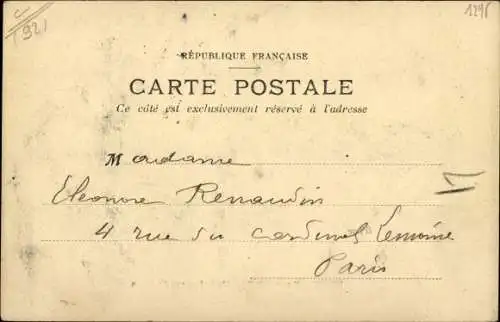 1296
921
RÉPUBLIQUE FRANÇAISE
CARTE POSTALE
Ce côté est exclusivement réservé à l'adresse
Madame
Eleonore Renaudin
4 rue du Cardinal Lemoine
Paris